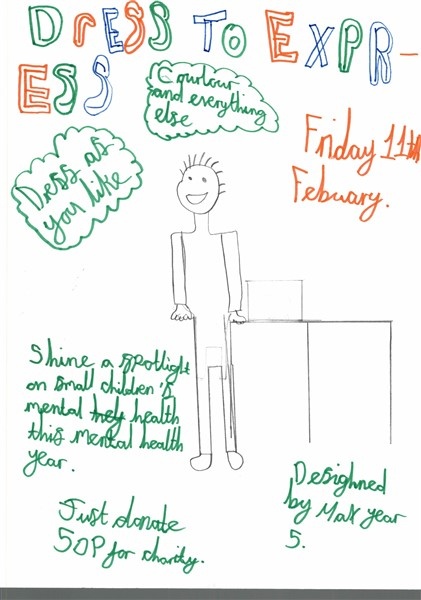 DRESS TO EXPR-
ESS
Courlour
and everything
else
Dress as
you like
Friday 11th
Febuary.
Shine a spotlight
on small children's
mental health
this mental health
year.
Just donate
50P for charity.
Desighned
by Max year
5.